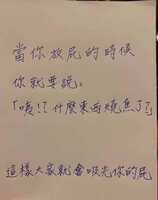 當你放屁的時候
你就要說:
「咦!?什麼東西燒焦了」
這樣大家就會吸光你的屁